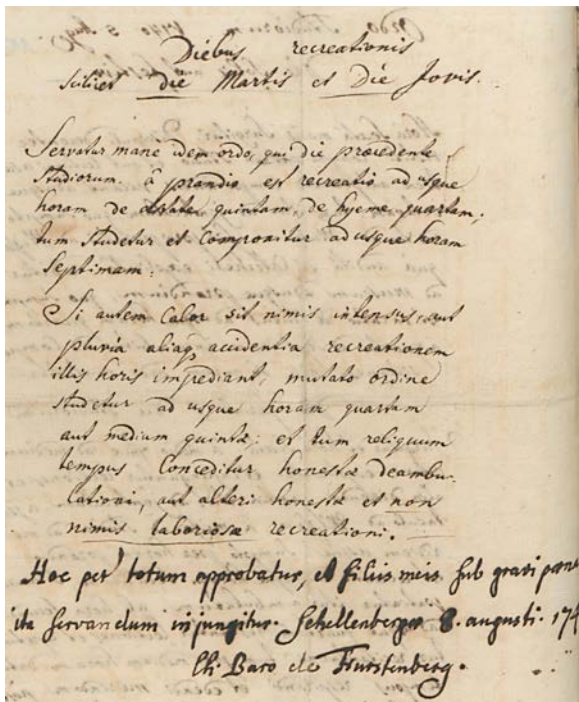 Diebus recreationis
scilicet die Martis et Die Jovis.
Servatur mane idem ordo, qui die præcedente
Studiorum. à prandio est recreatio ad usque
horam de æstate quintam, de hyeme quartam,
tum studetur et componitur ad usque horam
Septimam.
Si autem Calor sit nimis intensus, aut
pluvia aliaq accidentia recreationem
illis horis impediant, mutato ordine
studetur ad usque horam quartam
aut mediam quintæ: et tum reliquum
tempus Conceditur honestæ deambu-
lationi, aut alteri honestæ et non
nimis laboriosæ recreationi.
Hoc per totum approbatur, et filiis meis sub gravi pœna
ita servandum injungitur. Schellenberg 8. augusti. 174
Baro de Furstenberg.